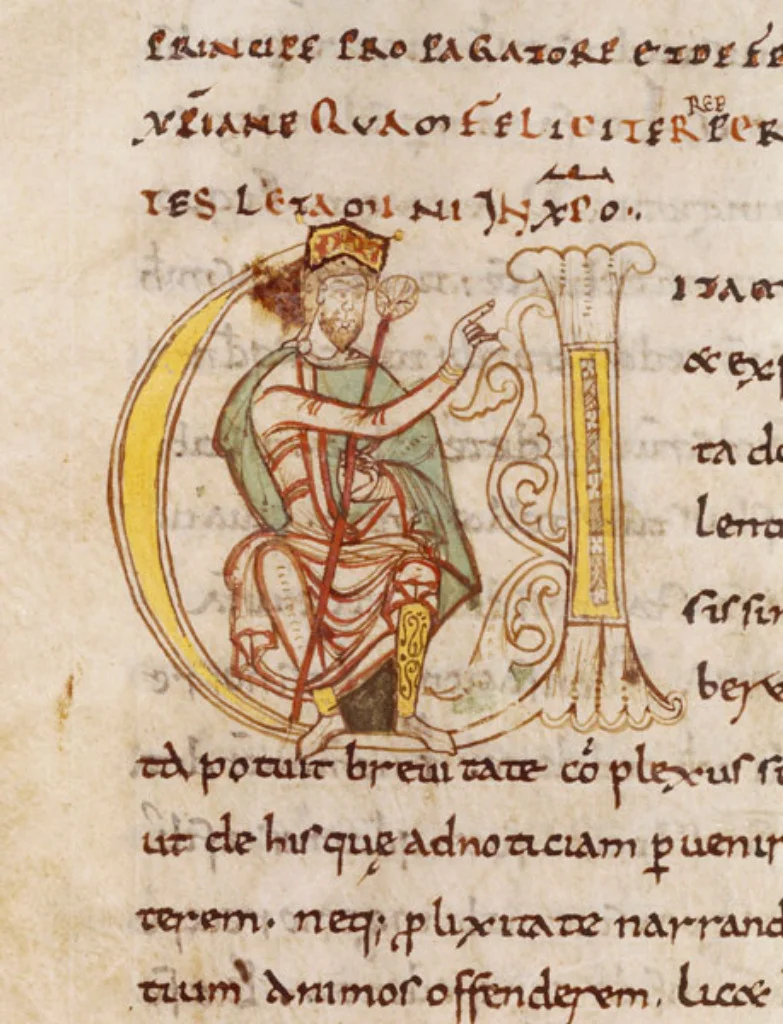 PRINCIPE PROPAGATORE ET DEFE
XP̄IANE QUAM FELICITER REP PER
TES LETAMINI IN XP̄O.
U ITAM
& exp
ta do
lent
sissim
beru
tā potuit breuitate cō plexus s
ut de his quę ad noticiam ꝑ uenir
terem. neq; ꝓ lixitate narrand
tium animos offenderem. lic&